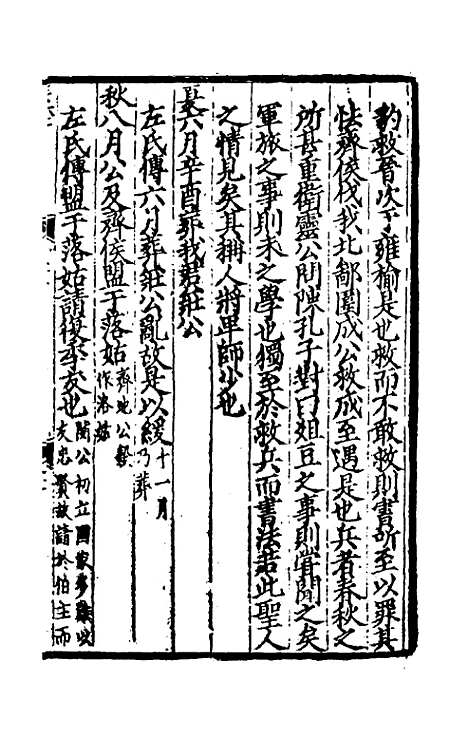 豹救晉次于雍榆是也救而不敢救則書所至以罪其
怯齊侯伐我北鄙圍成公救成至遇是也兵者春秋之
所甚重衛靈公問陳孔子對曰俎豆之事則嘗聞之矣
軍旅之事則未之學也獨至於救兵而書法若此聖人
之情見矣其稱人將卑師少也
夏六月辛酉葬我君莊公
左氏傳六月葬莊公亂故是以緩十一月乃葬
秋八月公及齊侯盟于落姑齊地公穀作洛姑
左氏傳盟于落姑請復季友也閔公初立國家多難以季友忠賢故請於伯主而